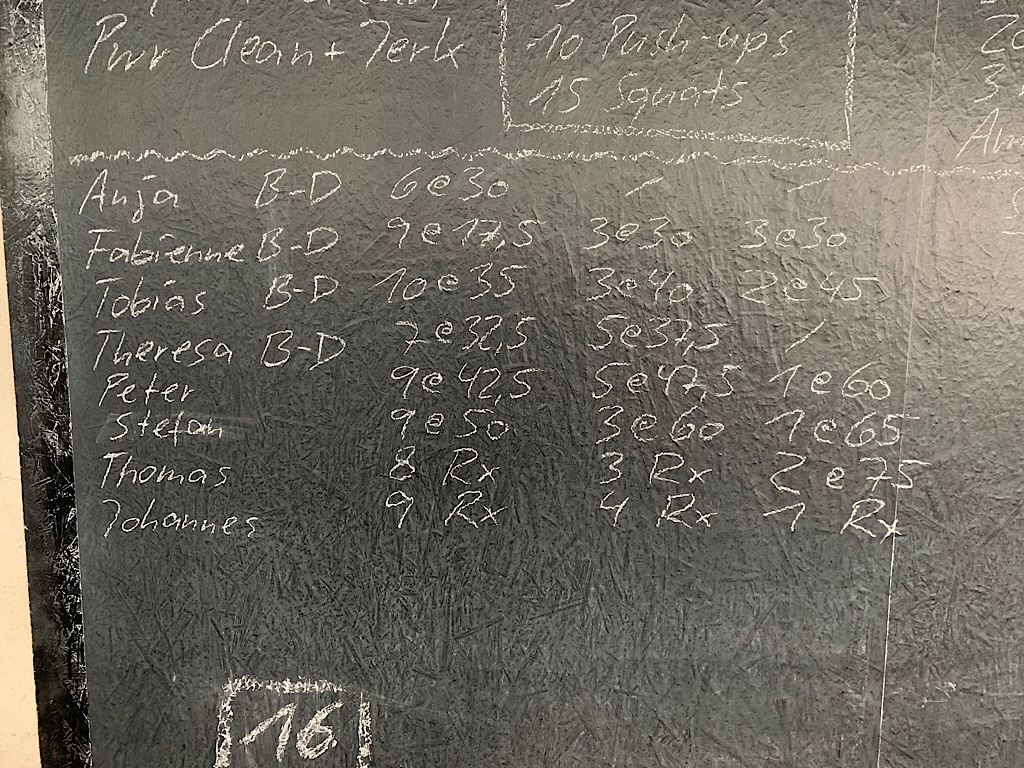 Pwr Clean + Jerk
10 Push-ups
15 Squats
Anja B-D 6@30 / /
Fabienne B-D 9@17,5 3@30 3@30
Tobias B-D 10@35 3@40 2@45
Theresa B-D 7@32,5 5@37,5 /
Peter 9@42,5 5@47,5 1@60
Stefan 9@50 3@60 1@65
Thomas 8 Rx 3 Rx 2@75
Johannes 9 Rx 4 Rx 1 Rx
16